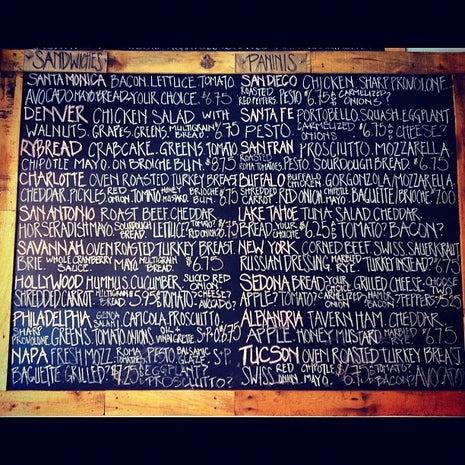 SANDWICHES
SANTA MONICA BACON. LETTUCE. TOMATO.
AVOCADO. MAYO. BREAD: YOUR CHOICE. $6.75
DENVER CHICKEN SALAD WITH
WALNUTS. GRAPES. GREENS. MULTIGRAIN BREAD.
RYBREAD CRABCAKE. GREENS. TOMATO
CHIPOTLE MAYO. ON BRIOCHE BUN. $8.75
CHARLOTTE OVEN ROASTED TURKEY BREAST
CHEDDAR. PICKLES. RED ONION. TOMATO. HONEY MUSTARD. BRIOCHE BUN. $6.75
SAN ANTONIO ROAST BEEF. CHEDDAR.
HORSERADISH MAYO. SOURDOUGH BREAD. LETTUCE. RED ONION. TOMATO.
SAVANNAH OVEN ROASTED TURKEY BREAST
BRIE. WHOLE CRANBERRY SAUCE. MAYO. MULTIGRAIN BREAD. $6.75
HOLLYWOOD HUMMUS. CUCUMBER. SLICED RED ONION.
SHREDDED CARROT. MULTIGRAIN BREAD. TOMATO? CHEESE? AVOCADO?
PHILADELPHIA GENOA SALAMI CAPICOLA. PROSCIUTTO.
SHARP PROVOLONE. GREENS. TOMATO. ONIONS. OIL + VINAIGRETTE. S+P. $6.75
NAPA FRESH MOZZ. ROMA TOMATOES. PESTO. BALSAMIC S+P
BAGUETTE. GRILLED? $ EGGPLANT? PROSCIUTTO?
PANINIS
SAN DIEGO CHICKEN. SHARP PROVOLONE.
ROASTED RED PEPPERS. PESTO $6.75 CARMELIZED ONIONS?
SANTA FE PORTOBELLO. SQUASH. EGGPLANT.
PESTO. CARMELIZED ONION $6.75 CHEESE?
SAN FRAN PROSCIUTTO. MOZZARELLA.
ROASTED TOMATOES. PESTO. SOURDOUGH BREAD. $6.75
BUFFALO BUFFALO CHICKEN. GORGONZOLA. MOZZARELLA.
SHREDDED CARROT. RED ONION. CHIPOTLE MAYO. BAGUETTE/BRIOCHE $7.00
LAKE TAHOE TUNA SALAD. CHEDDAR.
BREAD: YOUR CHOICE $6.25 TOMATO? BACON?
NEW YORK CORNED BEEF. SWISS. SAUERKRAUT
RUSSIAN DRESSING. MARBLED RYE. TURKEY INSTEAD?
SEDONA BREAD: YOUR CHOICE. GRILLED CHEESE. CHOOSE
APPLE? TOMATO? CARMELIZED ONION? HAM? PEPPERS?
ALEXANDRIA TAVERN HAM. CHEDDAR.
APPLE. HONEY MUSTARD. MARBLED RYE
TUCSON OVEN ROASTED TURKEY BREAST
SWISS. RED ONION. CHIPOTLE MAYO. $6.75 TOMATO? BACON? AVOCADO?